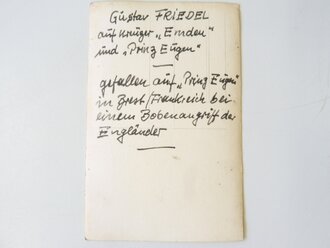 Gustav FRIEDEL
auf Kreuzer „Emden"
und „Prinz Eugen"
gefallen auf „Prinz Eugen"
in Brest/Frankreich bei
einem Bobenangriff der
Engländer